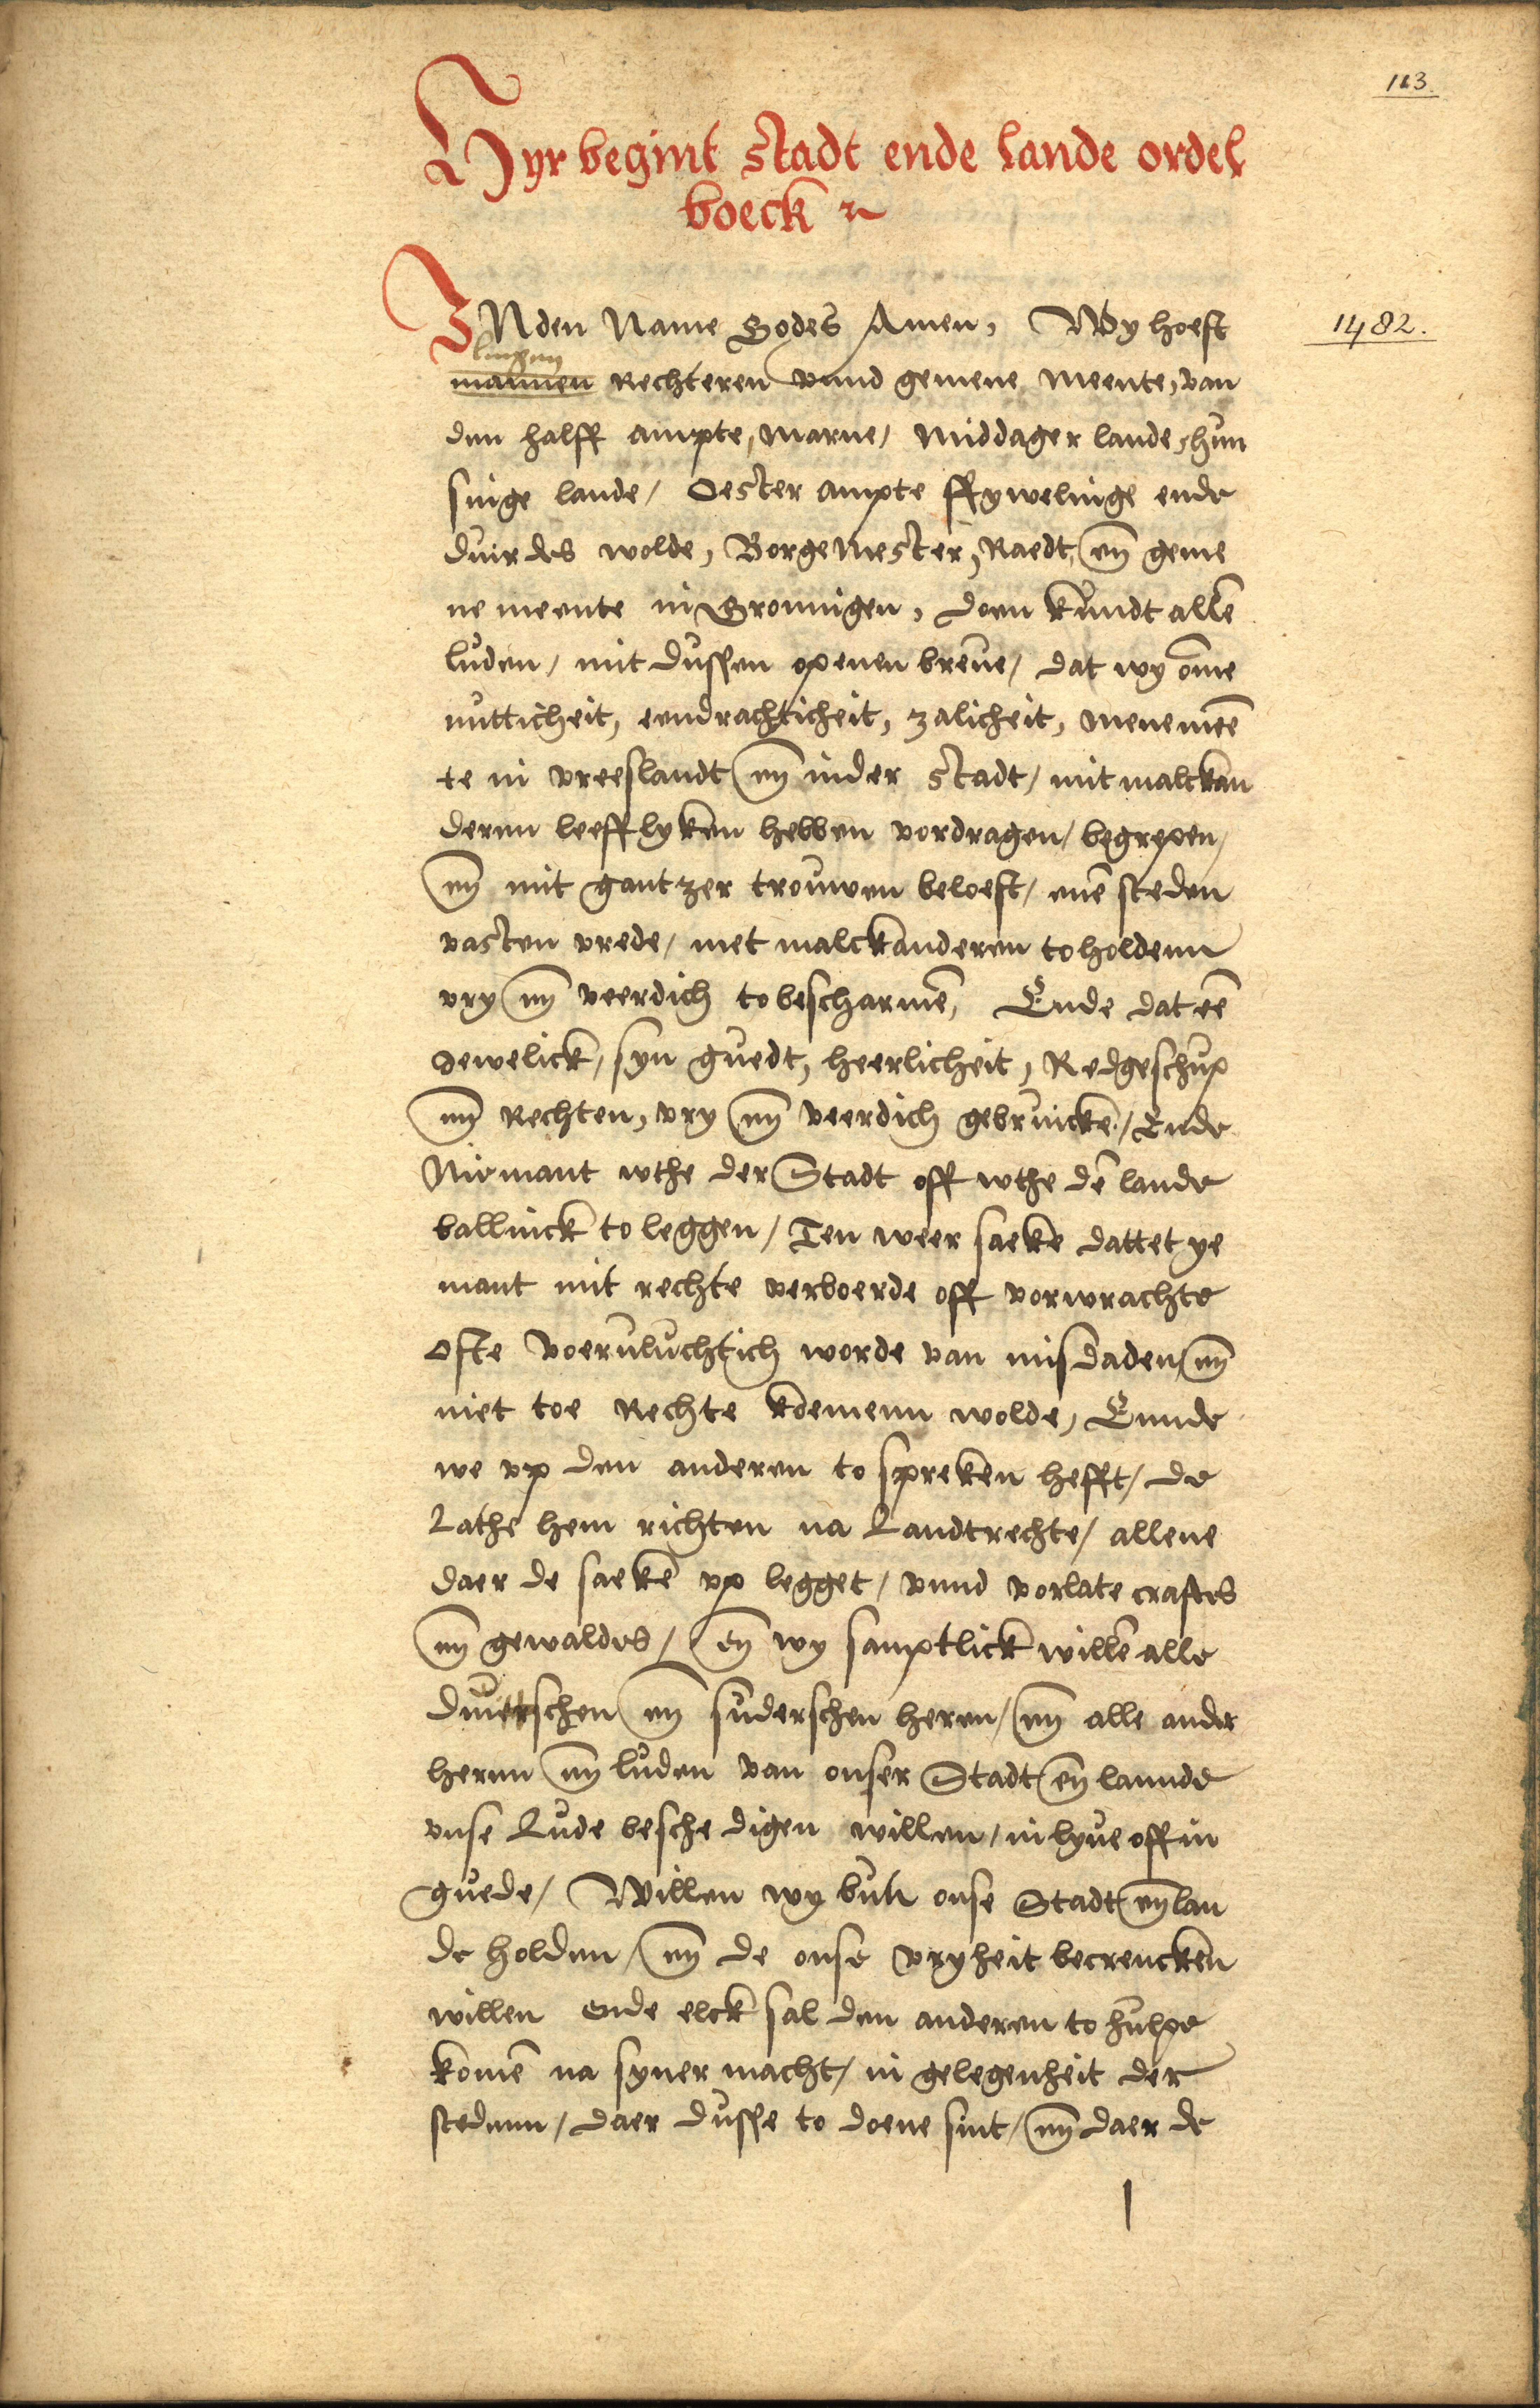 113.
Hyr begint Stadt ende lande ordel
boeck
1482.
INden Name Godes Amen, Wy hoeft
lingen
mannen Rechteren vnnd gemene meente, van
den halff ampte, marne, middager lande, hun
singe lande, Oester ampte ffywelinge ende
duirdes wolde, Borgemester, Raedt, en̄ geme
ne meente in Gronnigen, doen kundt allē
luden, mit dussen openen breue, dat wy om̄e
nutticheit, eendrachticheit, zalicheit, menemeē
te in vreeslandt en̄ inder Stadt, mit malckan
deren leefflyken hebben vordragen, begrepen,
en̄ mit gantzer trouwen beloeft, enē steden
vasten vrede, met malckanderen toholdenn
vry en̄ veerdich tobescharmē, Ende dat eē
Jewelick, syn guedt, heerlicheit, Redgeschup
en̄ Rechten, vry en̄ veerdich gebruickē, Ende
Niemant wthe der Stadt off wthe dē lande
ballinck to leggen, Ten weer saeke dattet ye
mant mit rechte verboerde off vorwrachte
ofte voervluchtich worde van misdaden, en̄
niet toe Rechte koemenn wolde, Ennde
we vp den anderen to spreken hefft, de
Lathe hem richten na Landtrechte, allene
daer de saekē vp legget, vnnd vorlate craftes
en̄ gewaldes, en̄ wy samptlick willē alle
duetschen en̄ suderschen heren, en̄ alle ander
hernn en̄ luden van onser Stadt en̄ lannde
vnse Lude beschedigen willen, in lyue off in
guede, Willen wy buten onse Stadt en̄ lan
de holden, en̄ de onse vryheit becrencken
willen ende elck sal den anderen to hulpe
komē na syner macht, in gelegenheit der
stedenn, daer dusse to doene sint, en̄ daer de